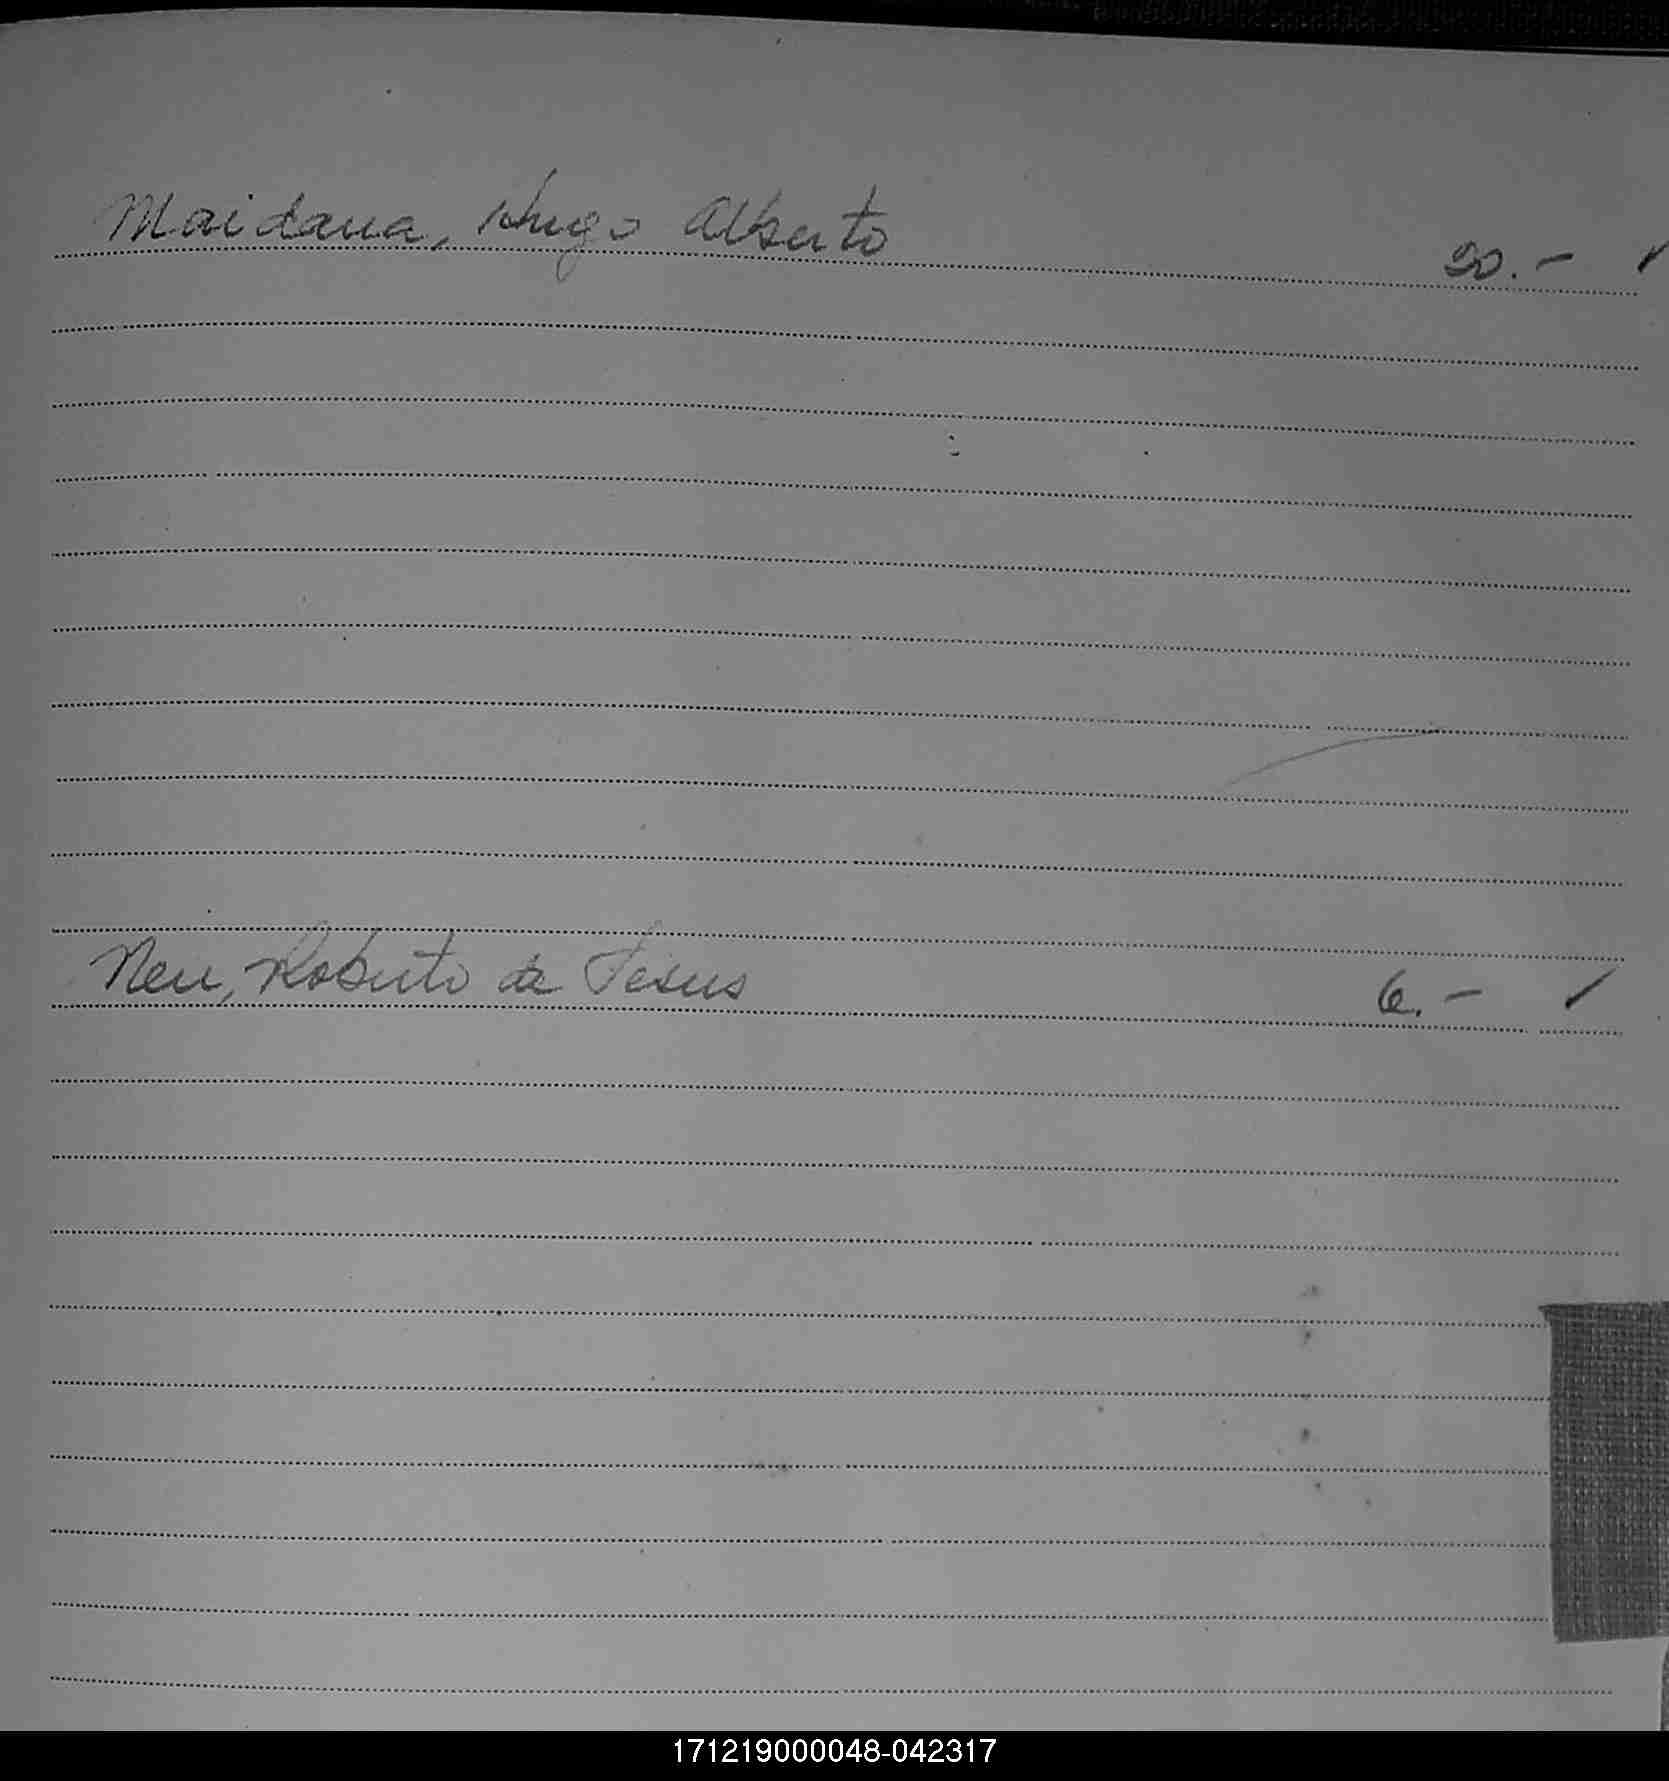 Maidana, Hugo Alberto 20.- ✓
Neu, Roberto de Jesus 6.- ✓
171219000048-042317